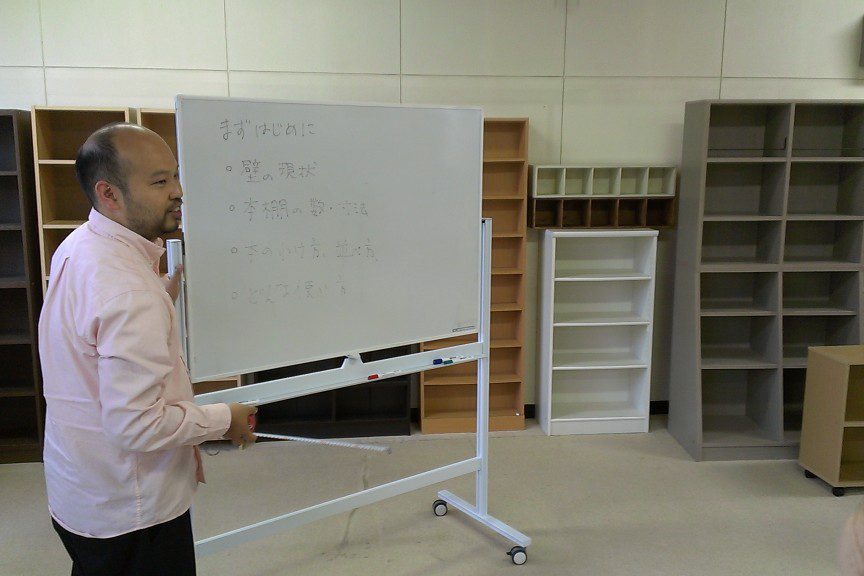 まずはじめに
○ 壁の現状
○ 本棚の数・寸法
○ 本の分け方、並べ方